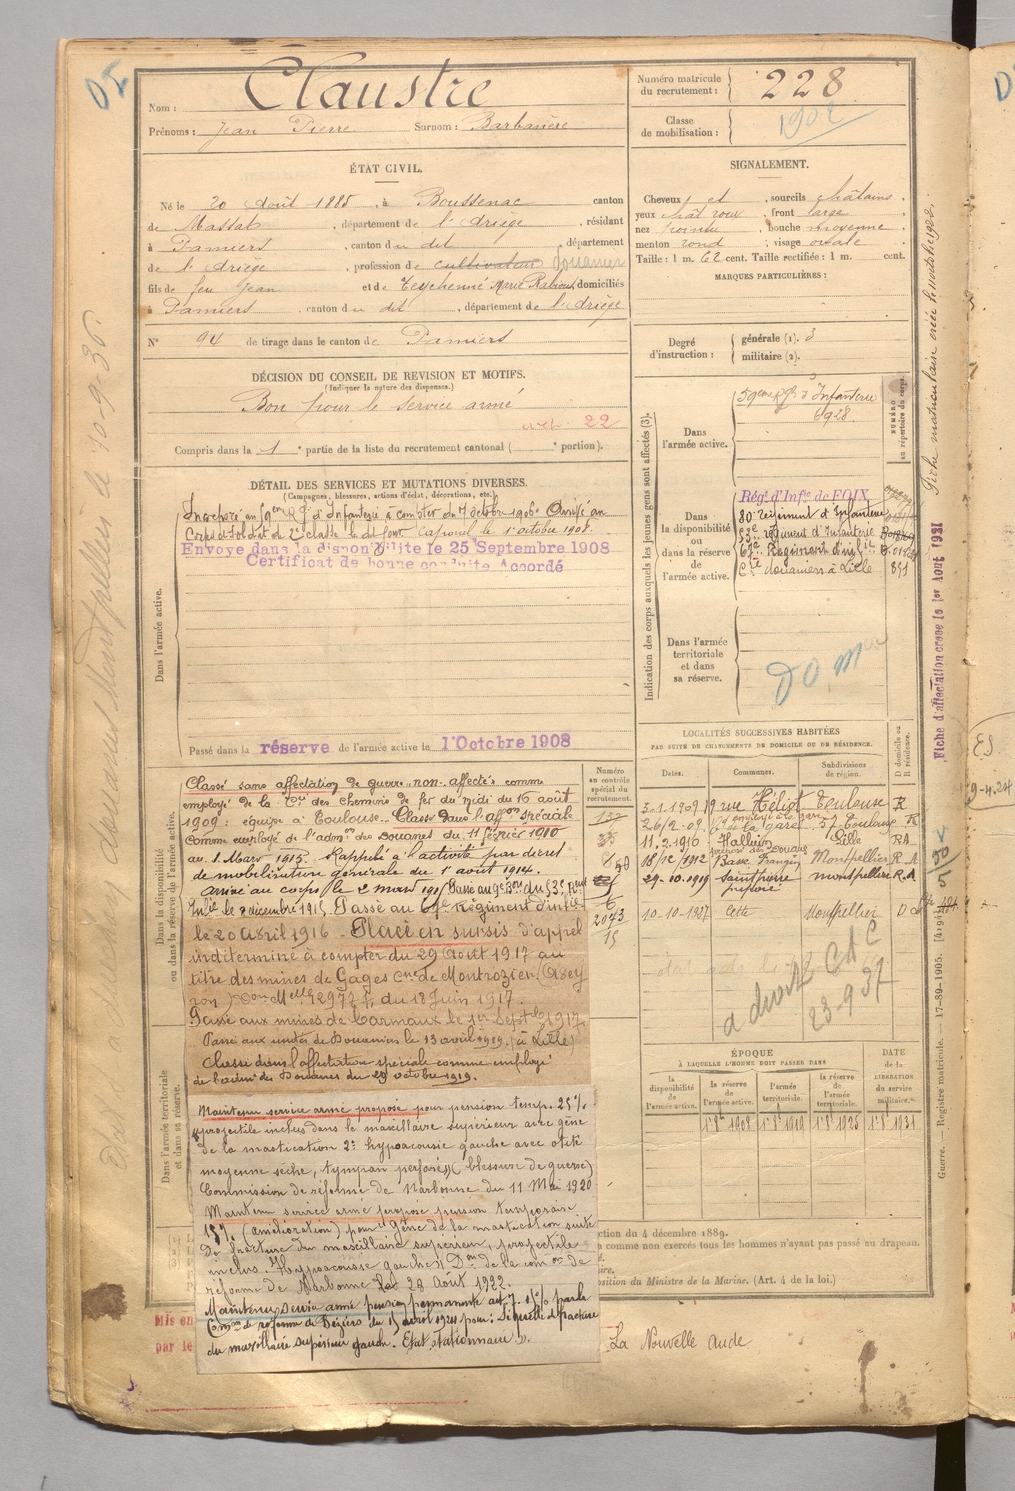 Nom : Claustre
Prénoms : Jean Pierre Surnom : Barbanère
Numéro matricule du recrutement : 228
Classe de mobilisation : 1902
ÉTAT CIVIL.
Né le 20 Août 1885, à Boussenac canton
de Massat, département de l'Ariège, résidant
à Pamiers, canton du dit, département
de l'Ariège, profession de cultivateur douanier
fils de feu Jean et de Teychenné Marie domiciliés
à Pamiers, canton du dit, département de l'Ariège
N° 94 de tirage dans le canton de Pamiers
SIGNALEMENT.
Cheveux et , sourcils châtains
yeux chât roux , front large
nez pointu , bouche moyenne
menton rond , visage ovale
Taille : 1 m. 62 cent. Taille rectifiée : 1 m. cent.
MARQUES PARTICULIÈRES :
Degré d'instruction : générale (1). 3
militaire (2).
DÉCISION DU CONSEIL DE REVISION ET MOTIFS.
(Indiquer la nature des dispenses.)
Bon pour le service armé
art. 22
Compris dans la 1 e partie de la liste du recrutement cantonal ( e portion).
DÉTAIL DES SERVICES ET MUTATIONS DIVERSES.
(Campagnes, blessures, actions d'éclat, décorations, etc.)
Dans l'armée active.
Incorporé au 59eme Rgt d'Infanterie à compter du 7 octobre 1906. Arrivé au
Corps et soldat de 2e classe le dit jour. Caporal le 1er octobre 1908.
Envoyé dans la disponibilité le 25 Septembre 1908
Certificat de bonne conduite Accordé
Passé dans la réserve de l'armée active le 1er Octobre 1908
Dans la disponibilité ou dans la réserve de l'armée active.
Classé sans affectation de guerre, non-affectés comme
employé de la Cie des chemins de fer du Midi du 16 août
1909 : équipe à Toulouse. Classé dans l'affon spéciale
comme employé de l'admon des Douanes du 11 février 1910
au 1 Mars 1915. Rappelé à l'activité par décret
de mobilisation générale du 1er août 1914.
Arrivé au corps le 2 mars 1915 Passé au 9e Bon du 53e Rmt
Infie le 8 décembre 1915. Passé au 67e Régiment d'Infie
le 20 Avril 1916 - Placé en sursis d'appel
indéterminé à compter du 29 Août 1917 au
titre des mines de Gages Cne de Montrozier (Avey
ron) Don Melle 12972 du 18 Juin 1917.
Passé aux mines de Carmaux le 1er Septbre 1917.
Passé aux unités de Douaniers le 13 avril 1919. (à Lille)
Classé dans l'affectation spéciale comme employé
de l'admon des Douanes du 29 octobre 1919.
Dans l'armée territoriale et dans sa réserve.
Maintenu service armé proposé pour pension temp. 25%
projectile inclus dans le maxillaire supérieur avec gêne
de la mastication 2° hypoacousie gauche avec otite
moyenne sèche, tympan perforé. (blessure de guerre)
Commission de réforme de Narbonne du 11 Mai 1920
Maintenu service armé proposé pension temporaire
15% (amélioration) pour 1° gêne de la mastication suite
de fracture du maxillaire supérieur, projectile
inclus. Hypoacousie gauche. Don de la com on de
réforme de Narbonne du 29 Août 1922.
Maintenu Service armé pension permanente art 7. 15% par la
Comon de réforme de Béziers du 15 avril 1924 pour : Séquelle de fracture
du maxillaire supérieur gauche. Etat stationnaire.
Numéro au contrôle spécial du recrutement.
2073
15
Indication des corps auxquels les jeunes gens sont affectés (3).
NUMÉRO au répertoire du corps.
Dans l'armée active.
59eme Rgt d'Infanterie
6928.
Dans la disponibilité ou dans la réserve de l'armée active.
Régt d'Infie de FOIX
80e régiment d'Infanterie
53e régiment d'Infanterie
67e Régiment d'Infie
Cie douaniers à Lille 851
Dans l'armée territoriale et dans sa réserve.
LOCALITÉS SUCCESSIVES HABITÉES
PAR SUITE DE CHANGEMENTS DE DOMICILE OU DE RÉSIDENCE.
Dates. Communes. Subdivisions de région. D domicile ou R résidence.
3-1-1909 19 rue Héliot Toulouse R
26/2-09. employé à la gare Toulouse R
11.2-1910 Halluin Lille RA
18/12/1912 Basse Franqui Montpellier R.A
29-10-1919 Saint Pierre Montpellier R.A
préposé
10-10-1927 Cette Montpellier D
à droit C d C
23-9 37
ÉPOQUE
À LAQUELLE L'HOMME DOIT PASSER DANS
la disponibilité de l'armée active. la réserve de l'armée active. l'armée territoriale. la réserve de l'armée territoriale.
DATE de la LIBÉRATION du service militaire.
1er 8bre 1908 1er 8bre 1919 1er 8bre 1925 1er 8bre 1931
ction du 4 décembre 1889.
a comme non exercés tous les hommes n'ayant pas passé au drapeau.
osition du Ministre de la Marine. (Art. 4 de la loi.)
Mis en
par le
La Nouvelle Aude
Fiche d'affectation créée le 1er Aout 1931
Guerre. — Registre matricule. — 17-89-1905.